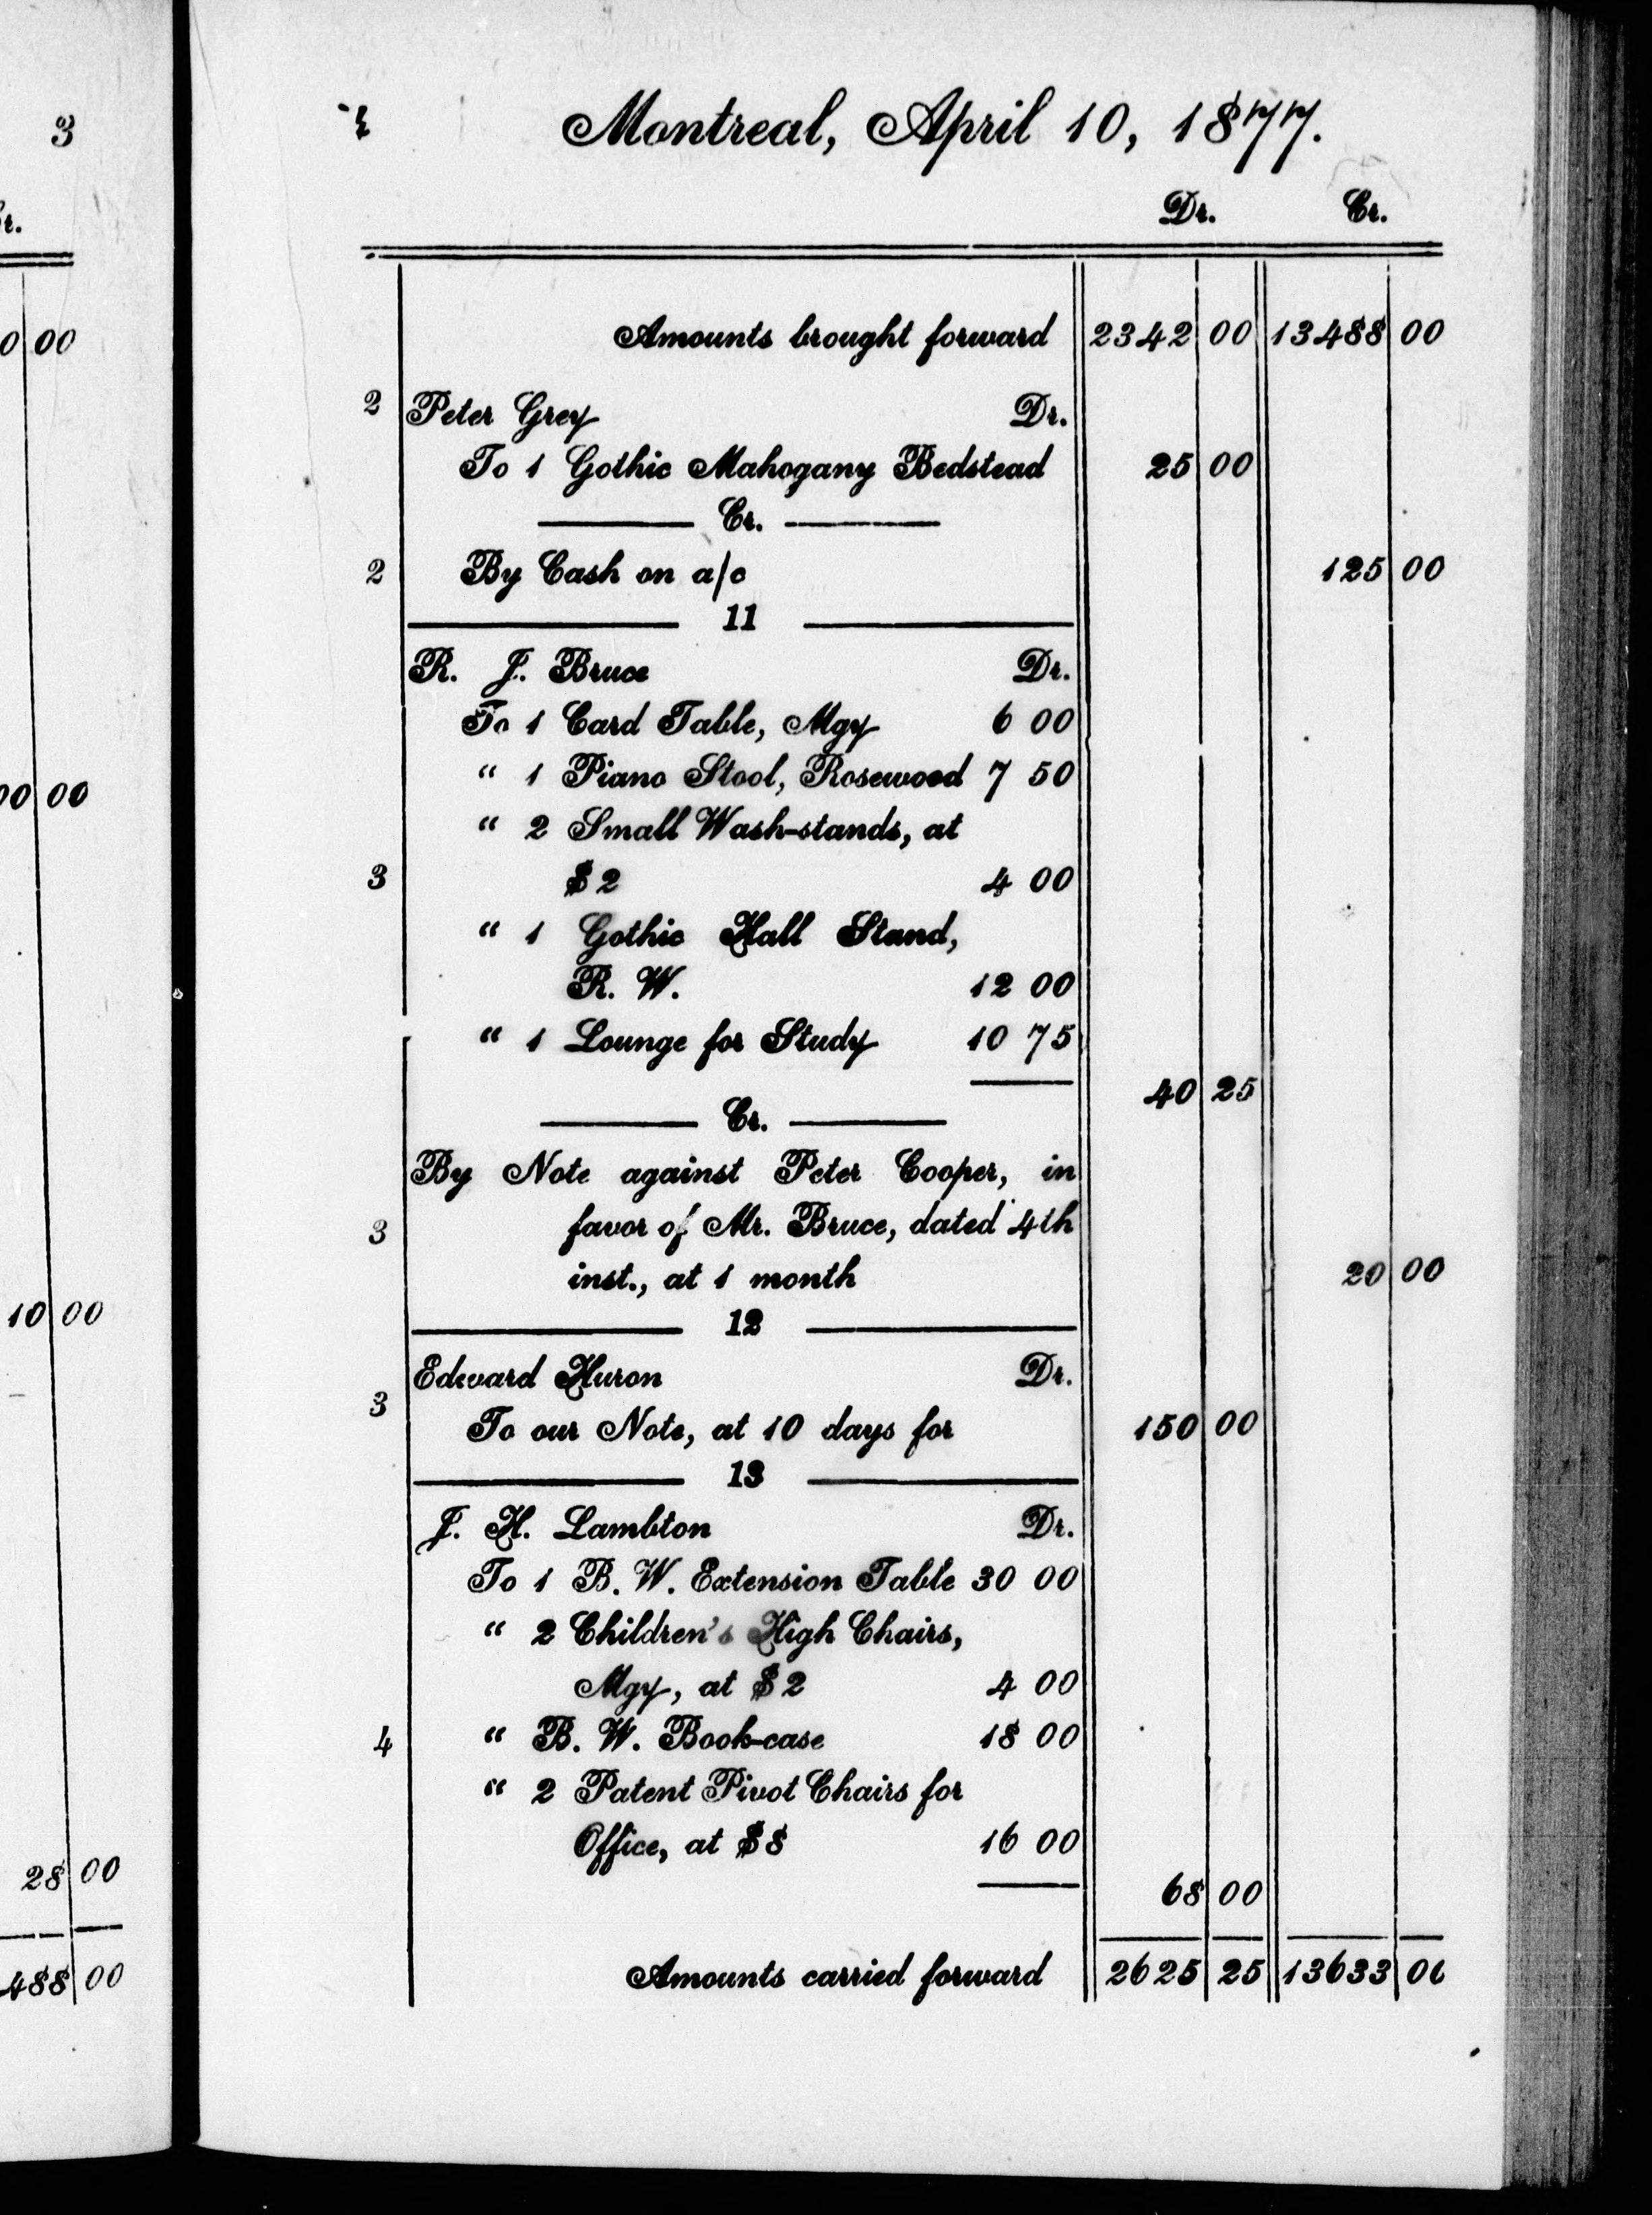 3
r.
0 00
00 00
10 00
28 00
488 00
Montreal, April 10, 1877.
Dr. Cr.
Amounts brought forward 2342 00 13488 00
2 Peter Grey Dr.
To 1 Gothic Mahogany Bedstead 25 00
Cr.
2 By Cash on a/c 125 00
11
R. J. Bruce Dr.
To 1 Card Table, Mgy 6 00
" 1 Piano Stool, Rosewood 7 50
" 2 Small Wash-stands, at
3 $2 4 00
" 1 Gothic Hall Stand,
R. W. 12 00
" 1 Lounge for Study 10 75
40 25
Cr.
By Note against Peter Cooper, in
3 favor of Mr. Bruce, dated 4th
inst., at 1 month 20 00
12
Edward Huron Dr.
3 To our Note, at 10 days for 150 00
13
J. H. Lambton Dr.
To 1 B. W. Extension Table 30 00
" 2 Children's High Chairs,
Mgy, at $2 4 00
4 " B. W. Book-case 18 00
" 2 Patent Pivot Chairs for
Office, at $8 16 00
68 00
Amounts carried forward 2625 25 13633 00